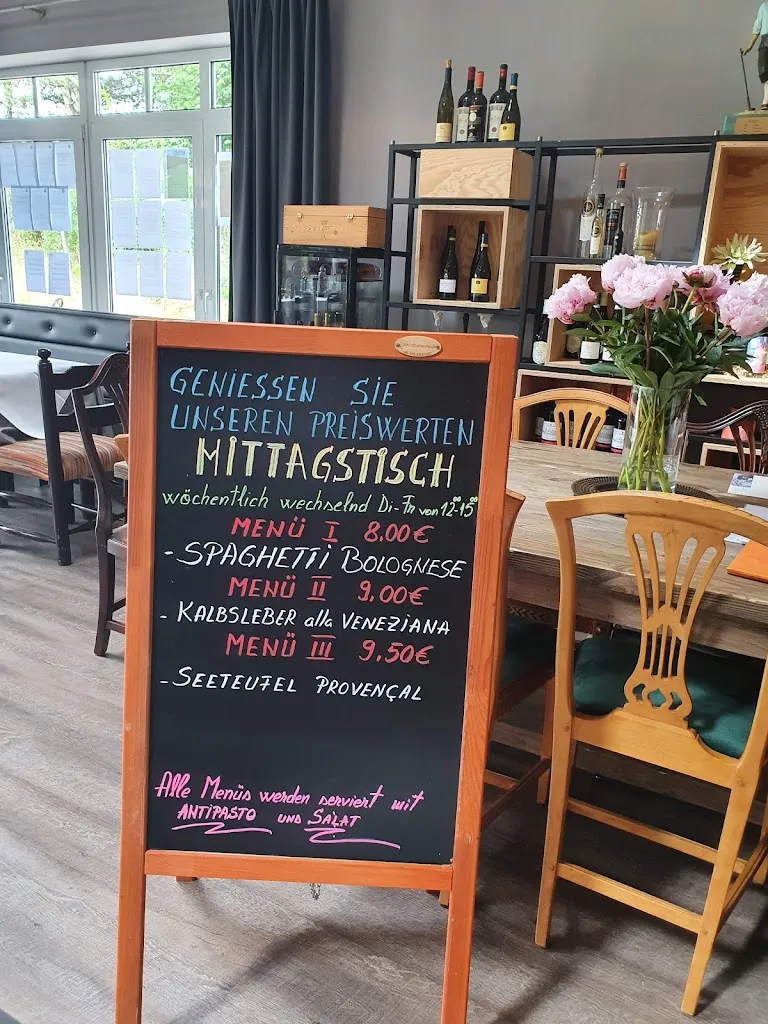 GENIESSEN SIE
UNSEREN PREISWERTEN
MITTAGSTISCH
wöchentlich wechselnd Di-Fr von 12⁰⁰-15⁰⁰
MENÜ I 8,00€
- SPAGHETTI BOLOGNESE
MENÜ II 9,00€
- KALBSLEBER alla VENEZIANA
MENÜ III 9,50€
- SEETEUFEL PROVENÇAL
Alle Menüs werden serviert mit
ANTIPASTO UND SALAT